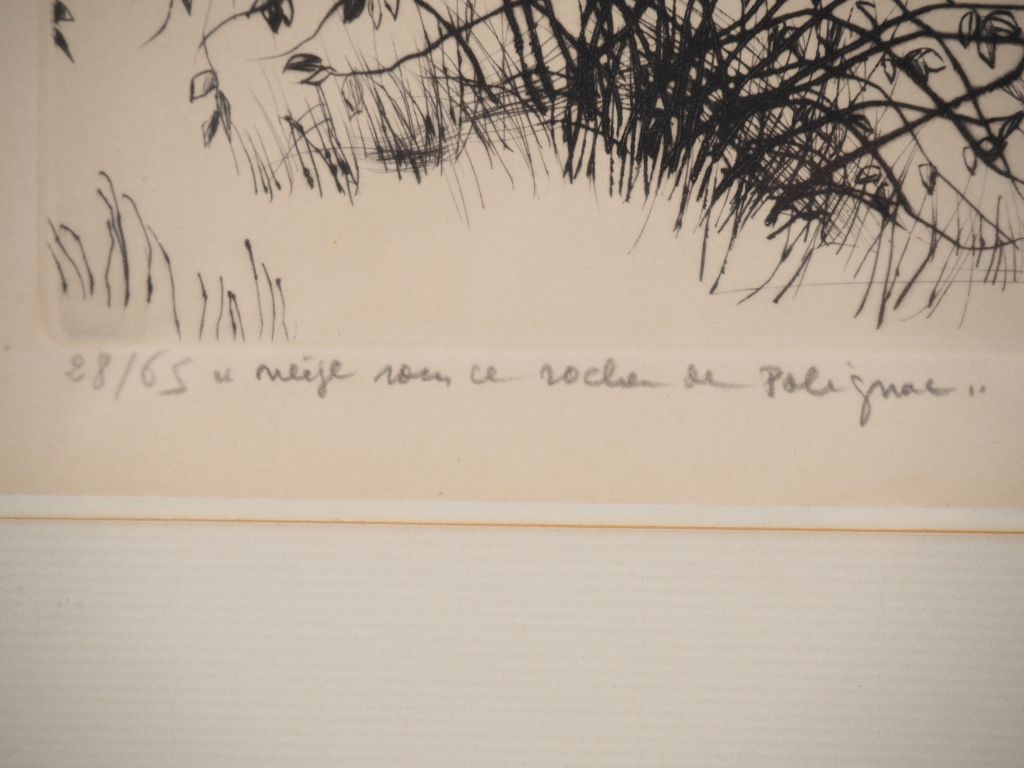 28/65 « neige sous le rocher de Polignac »